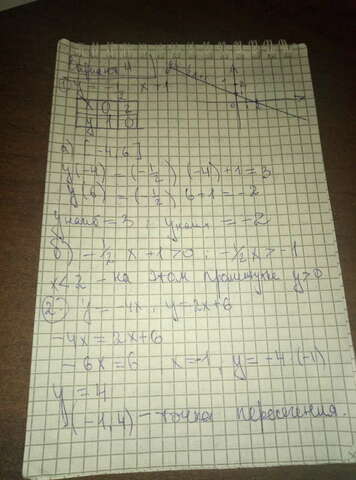 Вариант 4
① y = -1/2 x + 1
x | 0 | 2
y | 1 | 0
а) [-4; 6]
y(-4) = (-1/2) (-4) + 1 = 3
y(6) = (-1/2) 6 + 1 = -2
y наиб = 3 ; y наим = -2
б) -1/2 x + 1 > 0 ; -1/2 x > -1
x < 2 - на этом промежутке y > 0
② y = -4x, y = 2x + 6
-4x = 2x + 6
-6x = 6, x = -1, y = -4 · (-1)
y = 4
(-1, 4) - точка пересечения.